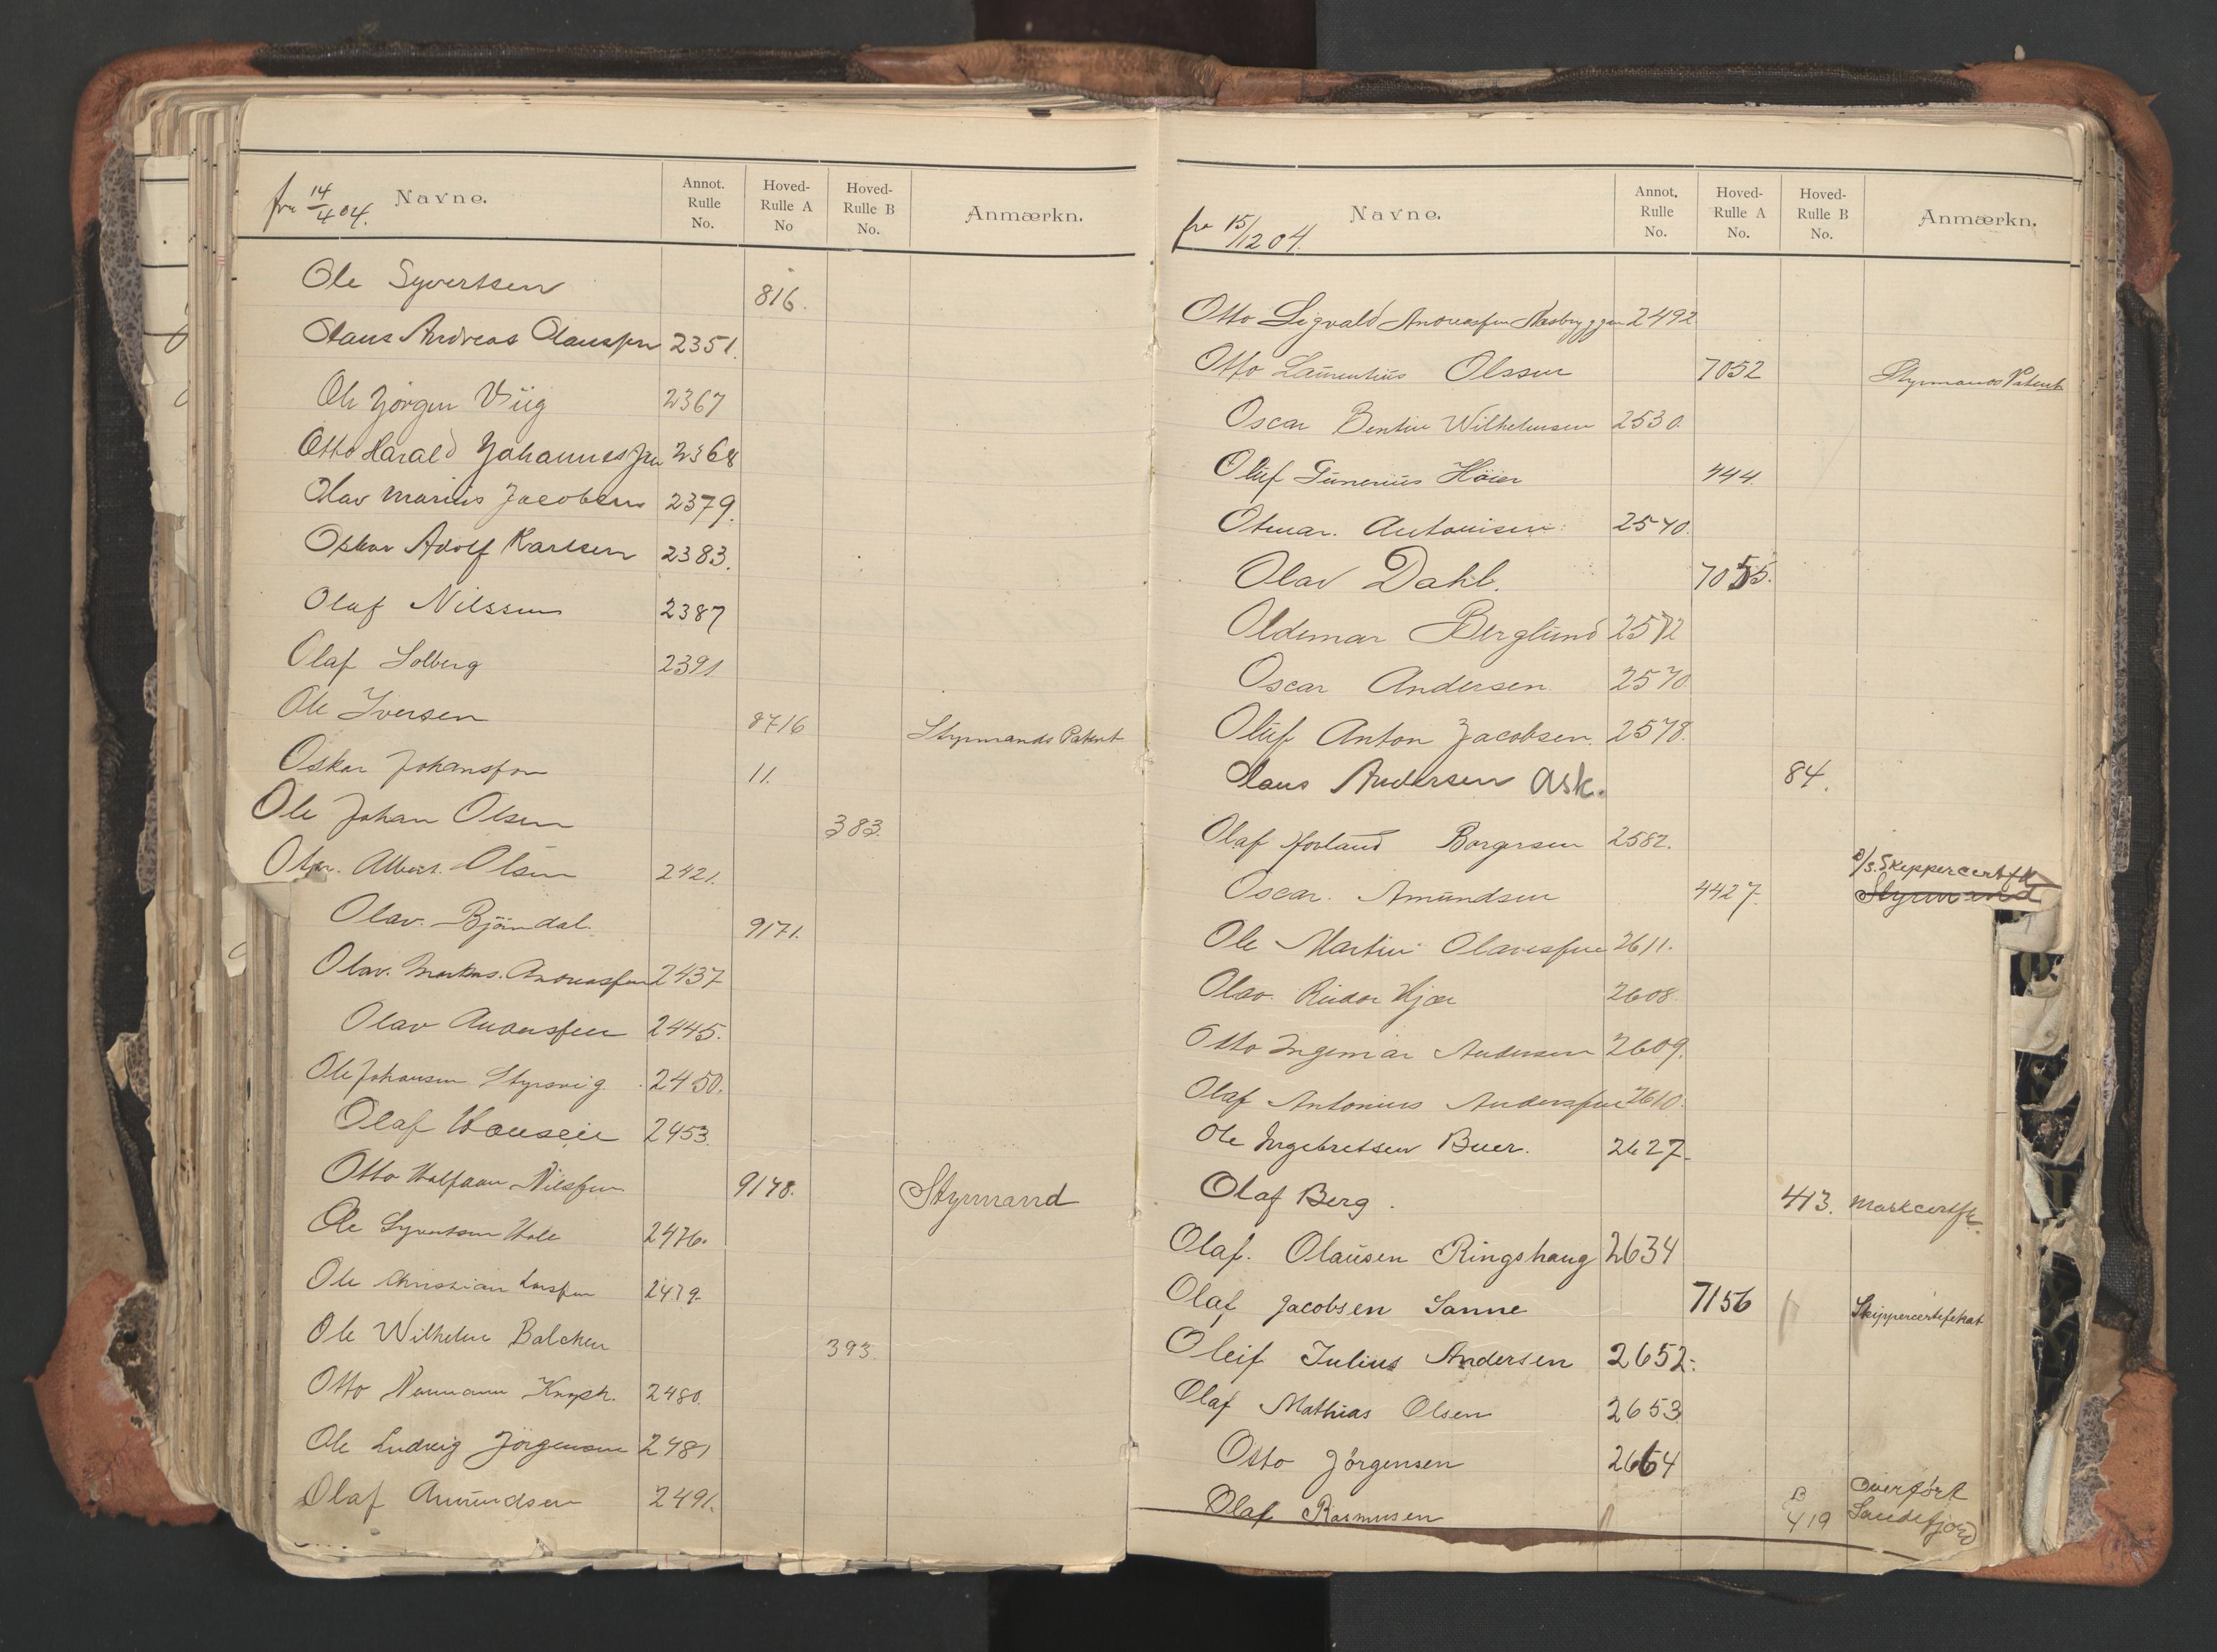 fra 14/4 04.
Navne. Annot. Rulle No. Hoved-Rulle A No Hoved-Rulle B No. Anmærkn.
Ole Syvertsen 816.
Olaus Andreas Olaussen 2351.
Ole Jörgen Viig 2367
Otto Harald Johannessen 2368
Olav Marius Jacobsen 2379.
Oskar Adolf Karlsen 2383.
Olaf Nilssen 2387
Olaf Solberg 2391
Ole Iversen 8716 Styrmands Patent
Oskar Johanssen 11.
Ole Johan Olsen 383.
Albert. Olsen 2421.
Olav. Bjöindal. 9171.
Olav. Markus. Andreassen 2437
Olav Andersen 2445.
Ole Johansen Styrsvig. 2450.
Olaf Hansen 2453.
Otto Nilssen 9178. Styrmand
Ole Syvertsen 2476.
Ole Christian Larssen 2479.
Ole Wilhelm Balchen 393.
Otto Normann 2480.
Ole Ludvig Jörgensen 2481
Olaf Amundsen 2491.
fra 15/12 04.
Navne. Annot. Rulle No. Hoved-Rulle A No. Hoved-Rulle B No. Anmærkn.
Otto Sigvald Andreassen Næsbryggen 2492
Otto Laurentius Olssen 7052 Styrmands Patent
Oscar Bentin Wilhelmsen 2530.
Oluf Gunerius Höier 444.
Otmar. Antonisen. 2540.
Olav Dahl. 7055.
Oldemar Berglund 2572
Oscar Andersen 2570
Oluf Anton Jacobsen. 2578.
Olaus Andersen Ask. 84.
Olaf Borgersen 2582.
Oscar. Amundsen 4427. Skippercertfk Styrmand
Ole Martin Olavessen 2611.
Olav. Reidar Kjær 2608.
Otto Ingemar Andersen 2609.
Olaf Antonius Anderssen 2610.
Ole Ingebretsen Buer. 2627.
Olaf Berg. 413. Maskcertfk.
Olaf. Olausen Ringshaug 2634
Olaf Jacobsen Sanne 7156 Skippercertefekat
Oleif Julius Andersen 2652.
Olaf Mathias Olsen 2653
Otto Jörgensen 2664
Olaf Rasmusen B 419 Overført Sandefjord